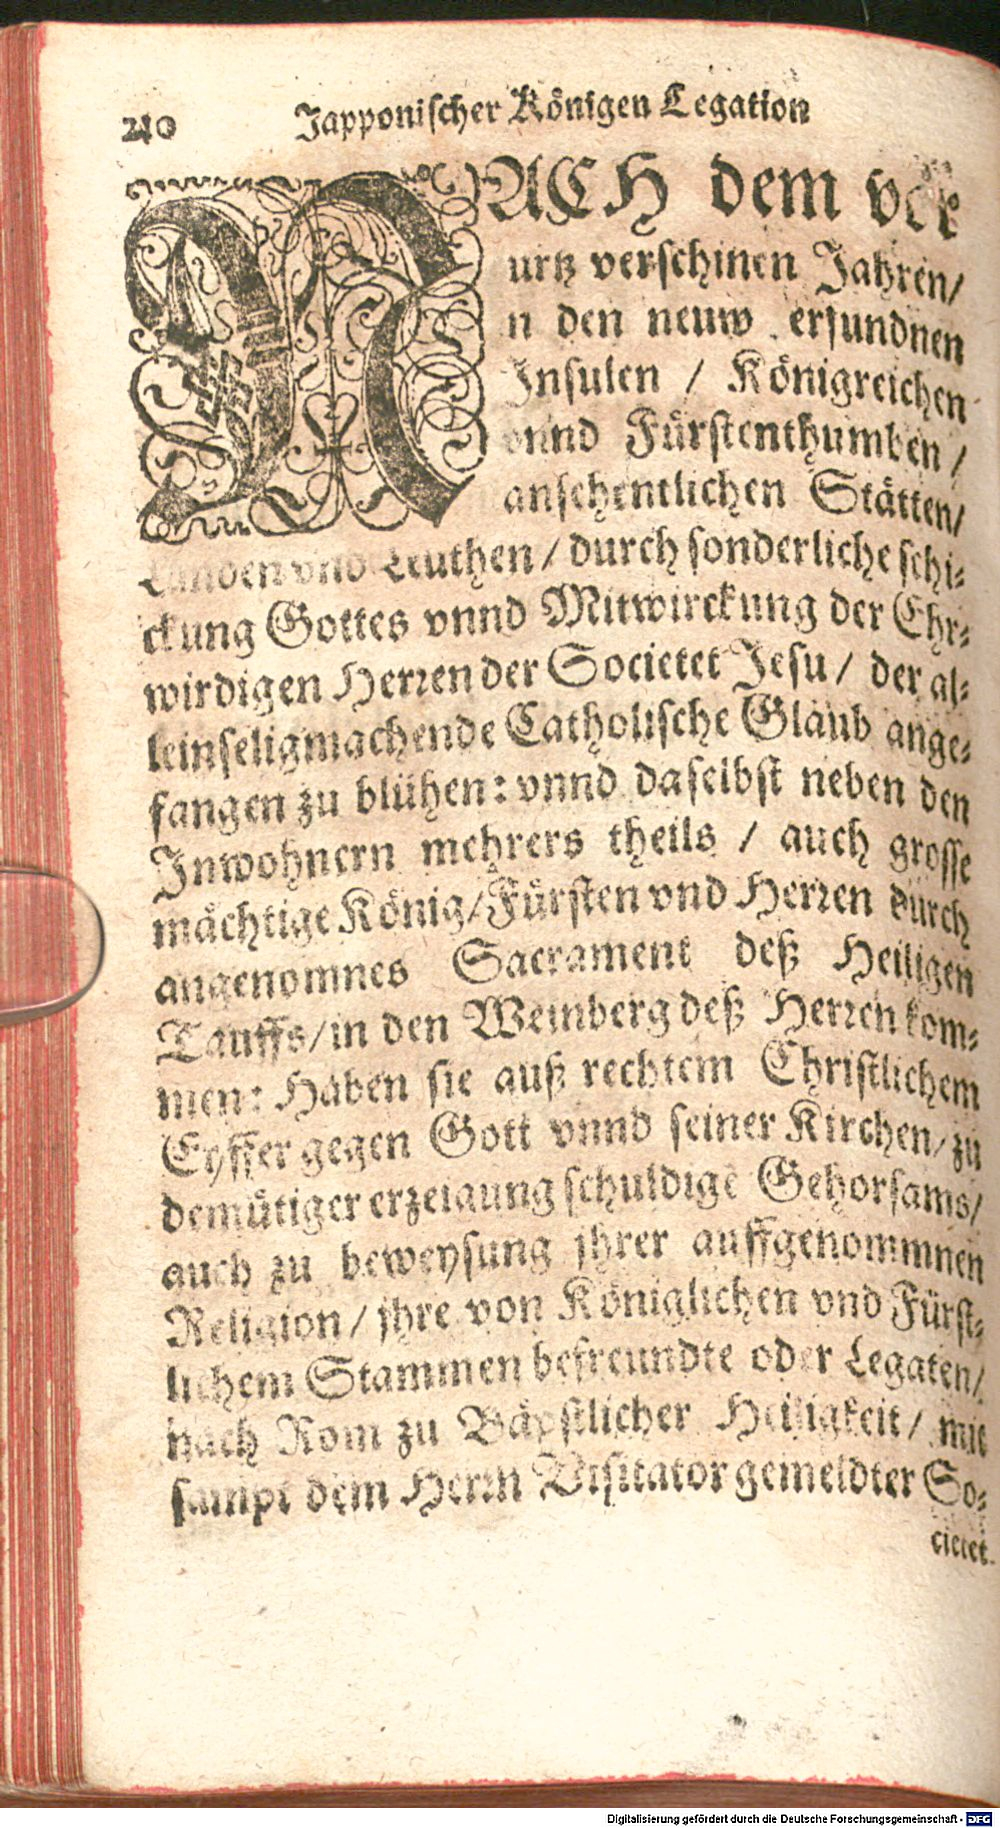 210 Japponischer Königen Legation
NACH dem vor
kurtz verschinen Jahren/
in den neuw erfundnen
Insulen / Königreichen
vnnd Fürstenthumben /
ansehentlichen Stätten/
Landen vnd Leuthen / durch sonderliche schi-
ckung Gottes vnnd Mitwirckung der Ehr-
wirdigen Herren der Societet Jesu / der al-
leinseligmachende Catholische Glaub ange-
fangen zu blühen: vnnd daselbst neben den
Inwohnern mehrers theils / auch grosse
mächtige König/Fürsten vnd Herren durch
angenomnes Sacrament deß Heiligen
Tauffs/in den Weinberg deß Herren kom-
men: Haben sie auß rechtem Christlichem
Eyffer gegen Gott vnnd seiner Kirchen/ zu
demütiger erzeigung schuldige Gehorsams/
auch zu beweysung jhrer auffgenommnen
Religion / jhre von Königlichen vnd Fürst-
lichem Stammen befreundte oder Legaten/
nach Rom zu Bäpstlicher Heiligkeit / mit
sampt dem Herrn Visitator gemeldter So-
cietet.
Digitalisierung gefördert durch die Deutsche Forschungsgemeinschaft - DFG